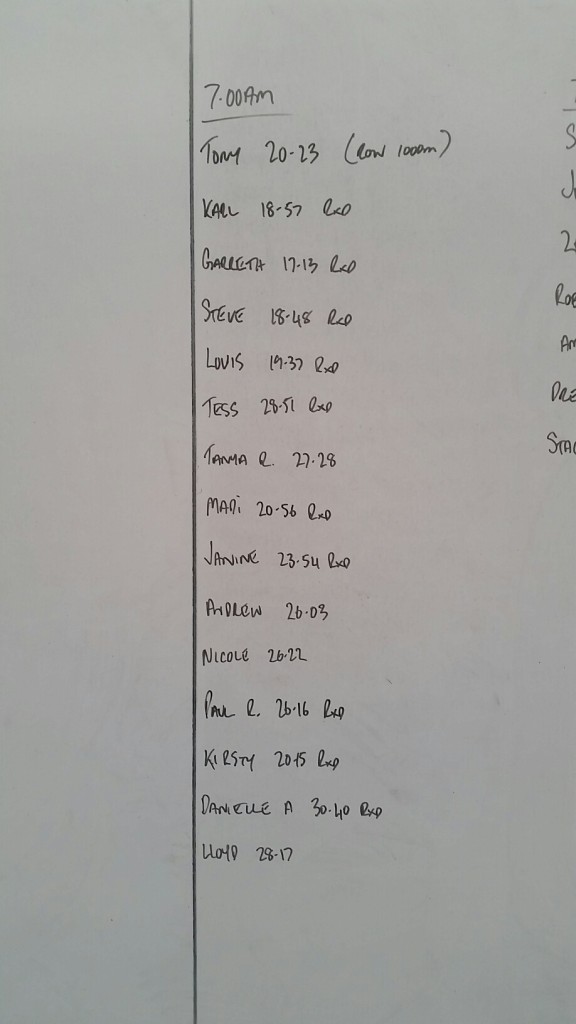 7.00AM
TONY 20-23 (ROW 1000m)
KARL 18-57 RXD
GARRETH 17-13 RXD
STEVE 18-48 RXD
LOUIS 19-37 RXD
TESS 28-51 RXD
TANYA R. 27-28
MADI 20-56 RXD
JANINE 23-54 RXD
ANDREW 26-03
NICOLE 26-22
PAUL R. 26-16 RXD
KIRSTY 20-15 RXD
DANIELLE A 30-40 RXD
LLOYD 28-17